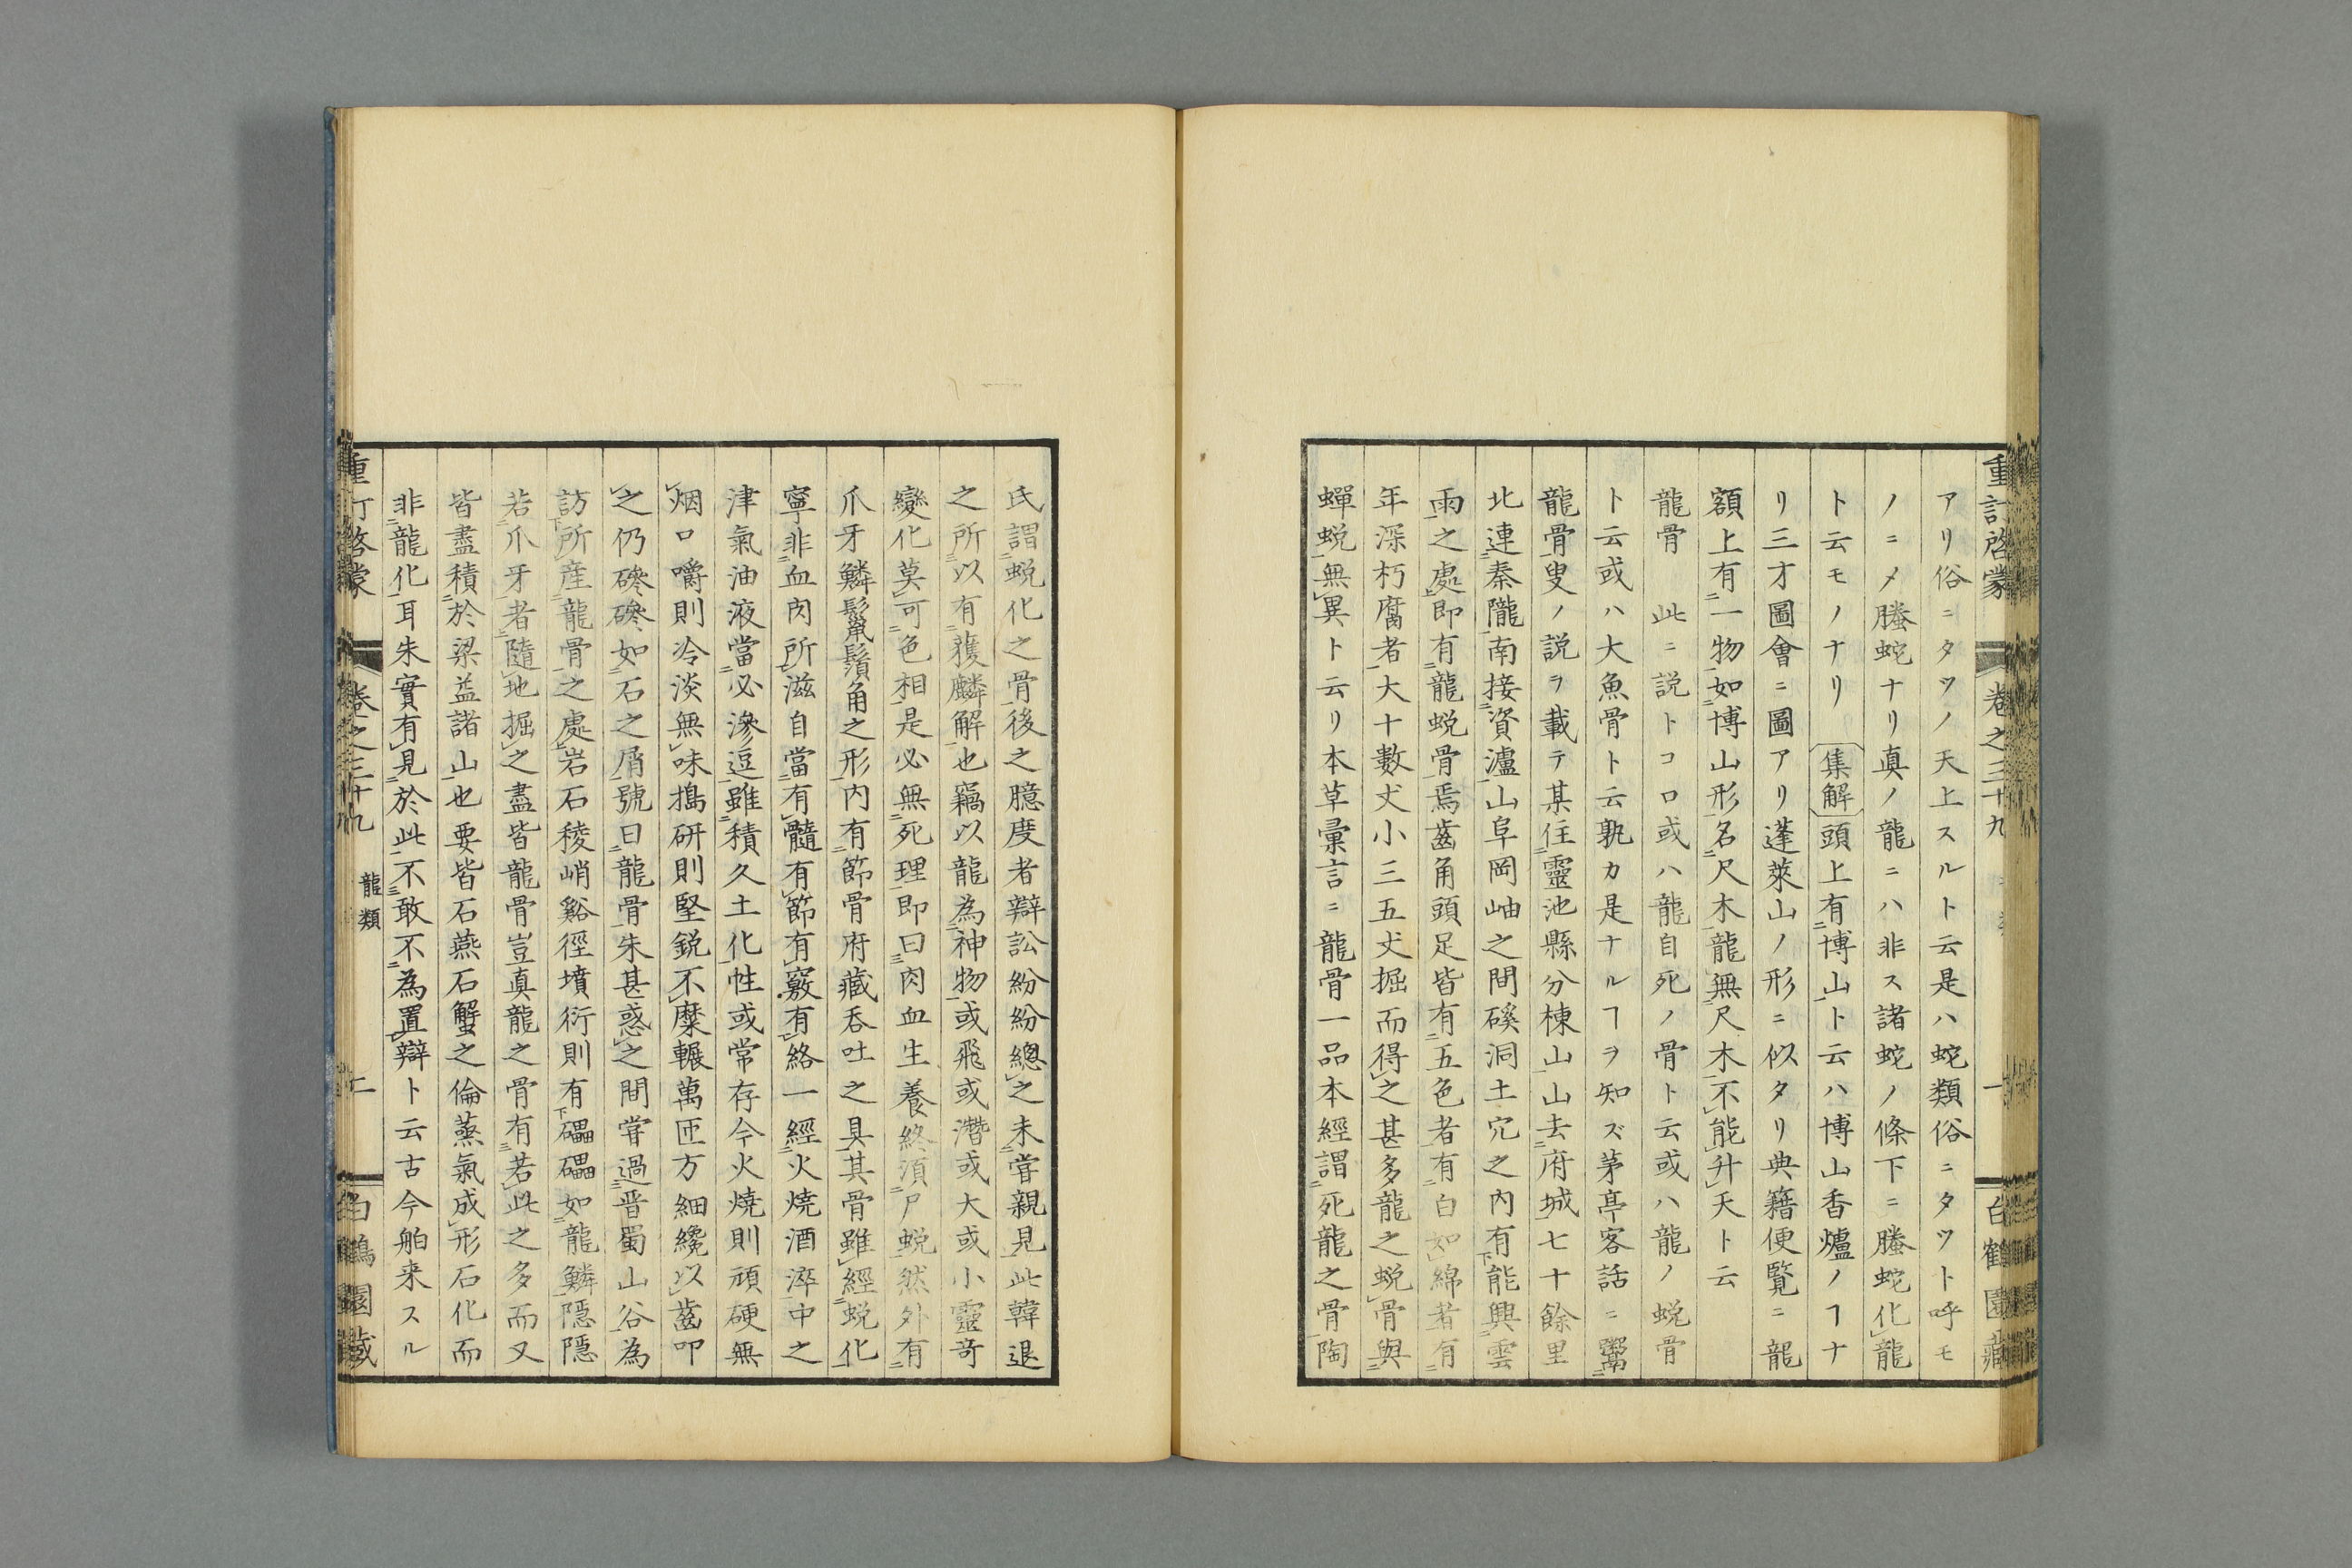 重訂啓蒙 卷之三十九 一 白鶴園藏
アリ俗ニタツノ天上スルト云是ハ蛇類俗ニタツト呼モ
ノニメ螣蛇ナリ真ノ龍ニハ非ス諸蛇ノ條下ニ螣蛇化龍
ト云モノナリ 集解 頭上有博山ト云ハ博山香爐ノヿナ
リ三才圖會ニ圖アリ蓬萊山ノ形ニ似タリ典籍便覽ニ龍
額上有一物如博山形名尺木龍無尺木不能升天ト云
龍骨 此ニ説トコロ或ハ龍自死ノ骨ト云或ハ龍ノ蛻骨
ト云或ハ大魚骨ト云孰カ是ナルヿヲ知ズ茅亭客話ニ鬻
龍骨叟ノ説ヲ載テ某住靈池縣分棟山山去府城七十餘里
北連秦隴南接資瀘山阜岡岫之間磎洞土穴之內有能興雲
雨之處即有龍蛻骨焉齒角頭足皆有五色者有白如綿者有
年深朽腐者大十數丈小三五丈掘而得之甚多龍之蛻骨與
蟬蛻無異ト云リ本草彙言ニ龍骨一品本經謂死龍之骨陶
氏謂蛻化之骨後之臆度者辯訟紛紛總之未嘗親見此韓退
之所以有獲麟解也竊以龍為神物或飛或潛或大或小靈奇
變化莫可色相是必無死理即曰肉血生養終須尸蛻然外有
爪牙鱗鬣鬚角之形內有節骨府藏吞吐之具其骨雖經蛻化
寧非血肉所滋自當有髓有節有竅有絡一經火燒酒淬中之
津氣油液當必滲逗雖積久土化性或常存今火燒則頑硬無
烟口嚼則冷淡無味搗研則堅銳不糜輾萬匝方細纔以齒叩
之仍磣磣如石之屑號曰龍骨朱甚惑之間嘗過晋蜀山谷為
訪所產龍骨之處岩石稜峭谿徑墳衍則有礧礧如龍鱗隱隱
若爪牙者隨地掘之盡皆龍骨豈真龍之骨有若此之多而又
皆盡積於梁益諸山也要皆石燕石蟹之倫蒸氣成形石化而
非龍化耳朱實有見於此不敢不為置辯ト云古今舶来スル
重訂啓蒙 卷之三十九 龍類 二 白鶴園藏